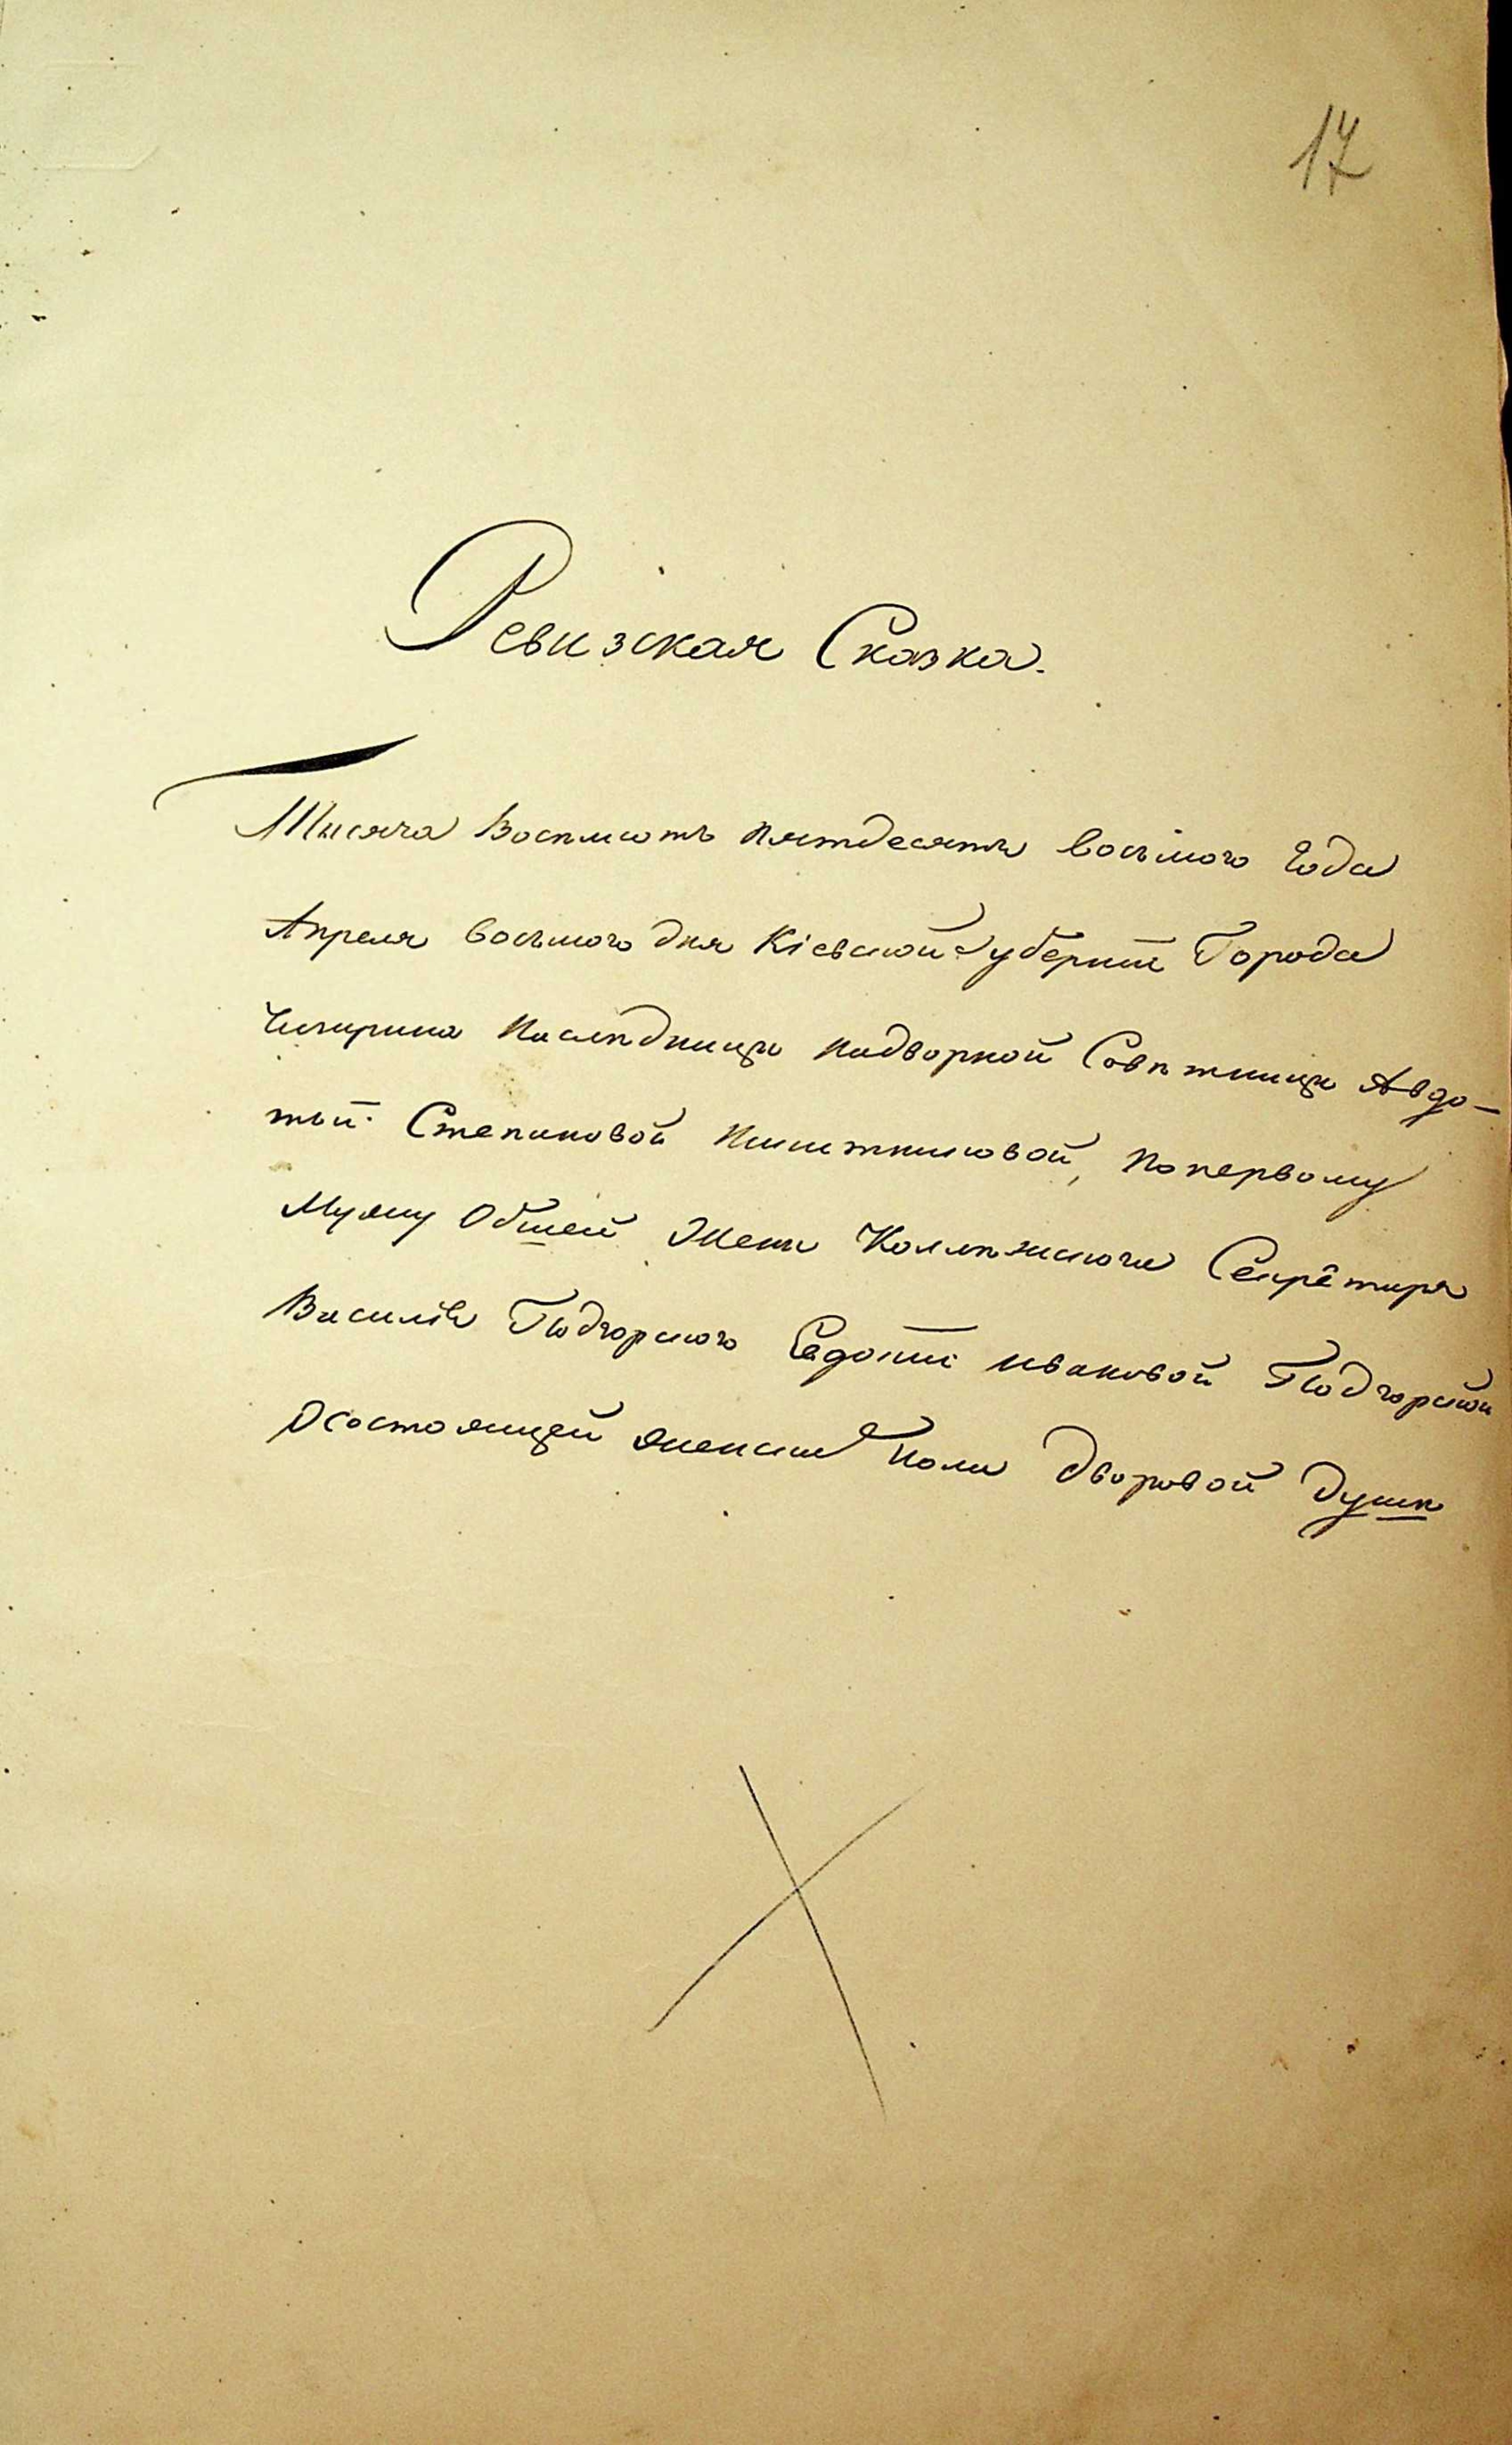 17
Ревизская Сказка.
Тысяча Восемьсотъ пятдесятъ восьмого Года
Апреля восьмого дня Кіевской Губерніи Города
Чигирина Наследници Надворной Советници Авдо-
тьи Степановой, по первому
Мужу жены Коллежскаго Секретаря
Василія Подгорского Івановой Подгорской
О состоящей женска Пола дворовой душе